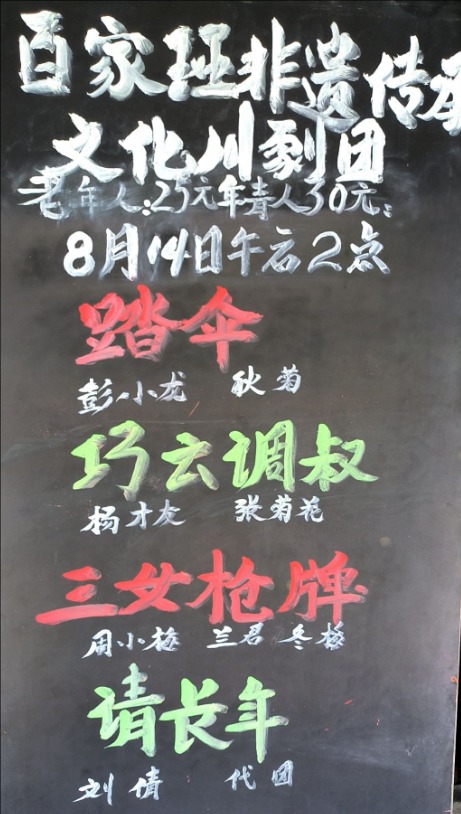 百家班非遗传承
文化川剧团
老年人:25元年青人30元:
8月14日午后2点
踏伞
彭小龙 秋菊
巧云调叔
杨才友 张菊花
三女抢牌
周小梅 兰君 冬梅
请长年
刘倩 代团